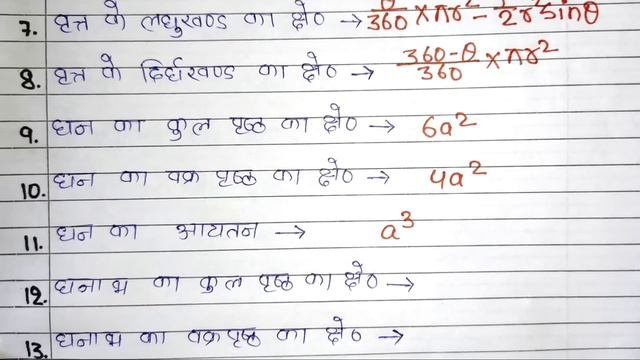 7. वृत्त के लघुखण्ड का क्षे० → θ/360 × πr² − 1/2 r² sinθ
8. वृत्त के दिर्घखण्ड का क्षे० → 360-θ/360 × πr²
9. घन का कुल पृष्ठ का क्षे० → 6a²
10. घन का वक्र पृष्ठ का क्षे० → 4a²
11. घन का आयतन → a³
12. घनाभ का कुल पृष्ठ का क्षे० →
13. घनाभ का वक्रपृष्ठ का क्षे० →